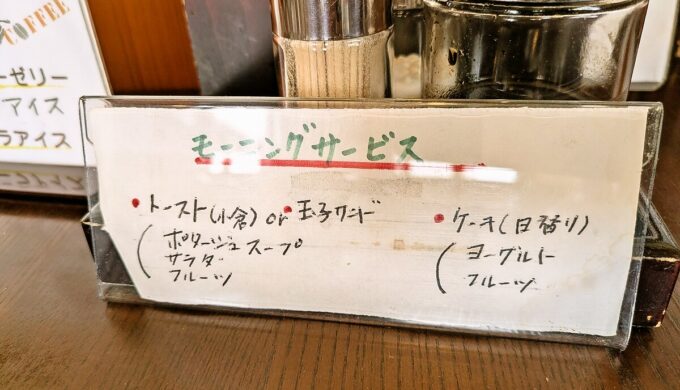 COFFEE
ーゼリー
アイス
ラアイス
モーニングサービス
・トースト(小倉) or ・玉子サンド
(ポタージュスープ
サラダ
フルーツ
・ケーキ(日替り)
(ヨーグルト
フルーツ